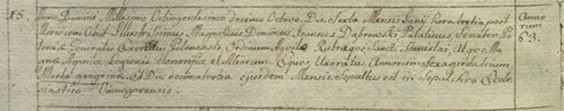 15. Anno Domini Millesimo Octingentesimo decimo Octavo. Die Sexta Mensis Junij hora tertia post Anno
Meridiem Obiit Illustrissimus Magnificus Dominus Joannes Dąbrowski Palatinus Senator Po rum
Generalis Exercitus Polonensis, Ordinum Aquilæ Sancti Stanislai, Albæ 63.
Aquilæ Legionis Honorificæ Eques Uxoratus Annorum Sexaginta trium,
Morbo gangrina. Et Die decima tertia ejusdem Mensis Sepultus est in Sepulchro Eccle
siastico Winogorensis.